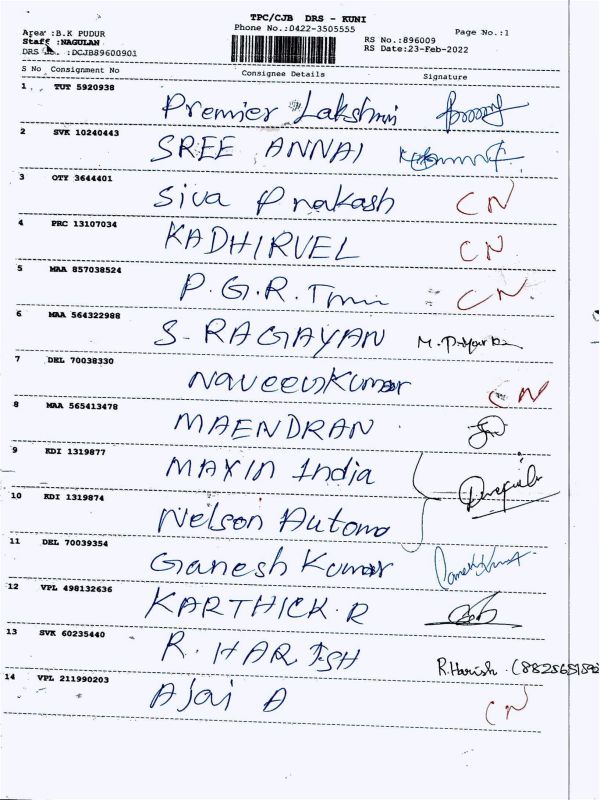 TPC/CJB DRS - KUNI
Phone No.:0422-3505555
Page No.:1
Area :B.K PUDUR
Staff :NAGULAN
DRS No. :DCJB89600901
RS No.:896009
RS Date:23-Feb-2022
S No Consignment No Consignee Details Signature
1 TUT 5920938 Premier Lakshmi
2 SVK 10240443 SREE ANNAI
3 OTY 3644401 Siva Prakash CN
4 PRC 13107034 KADHIRVEL CN
5 MAA 857038524 P.G.R. CN
6 MAA 564322988 S. RAGAYAN
7 DEL 70038330 NaveenKumar CN
8 MAA 565413478 MAENDRAN
9 KDI 1319877 MAXIN India
10 KDI 1319874 Nelson Automo
11 DEL 70039354 Ganesh Kumar
12 VPL 498132636 KARTHICK.R
13 SVK 60235440 R. HARISH R.Harish.
14 VPL 211990203 Ajai A CN